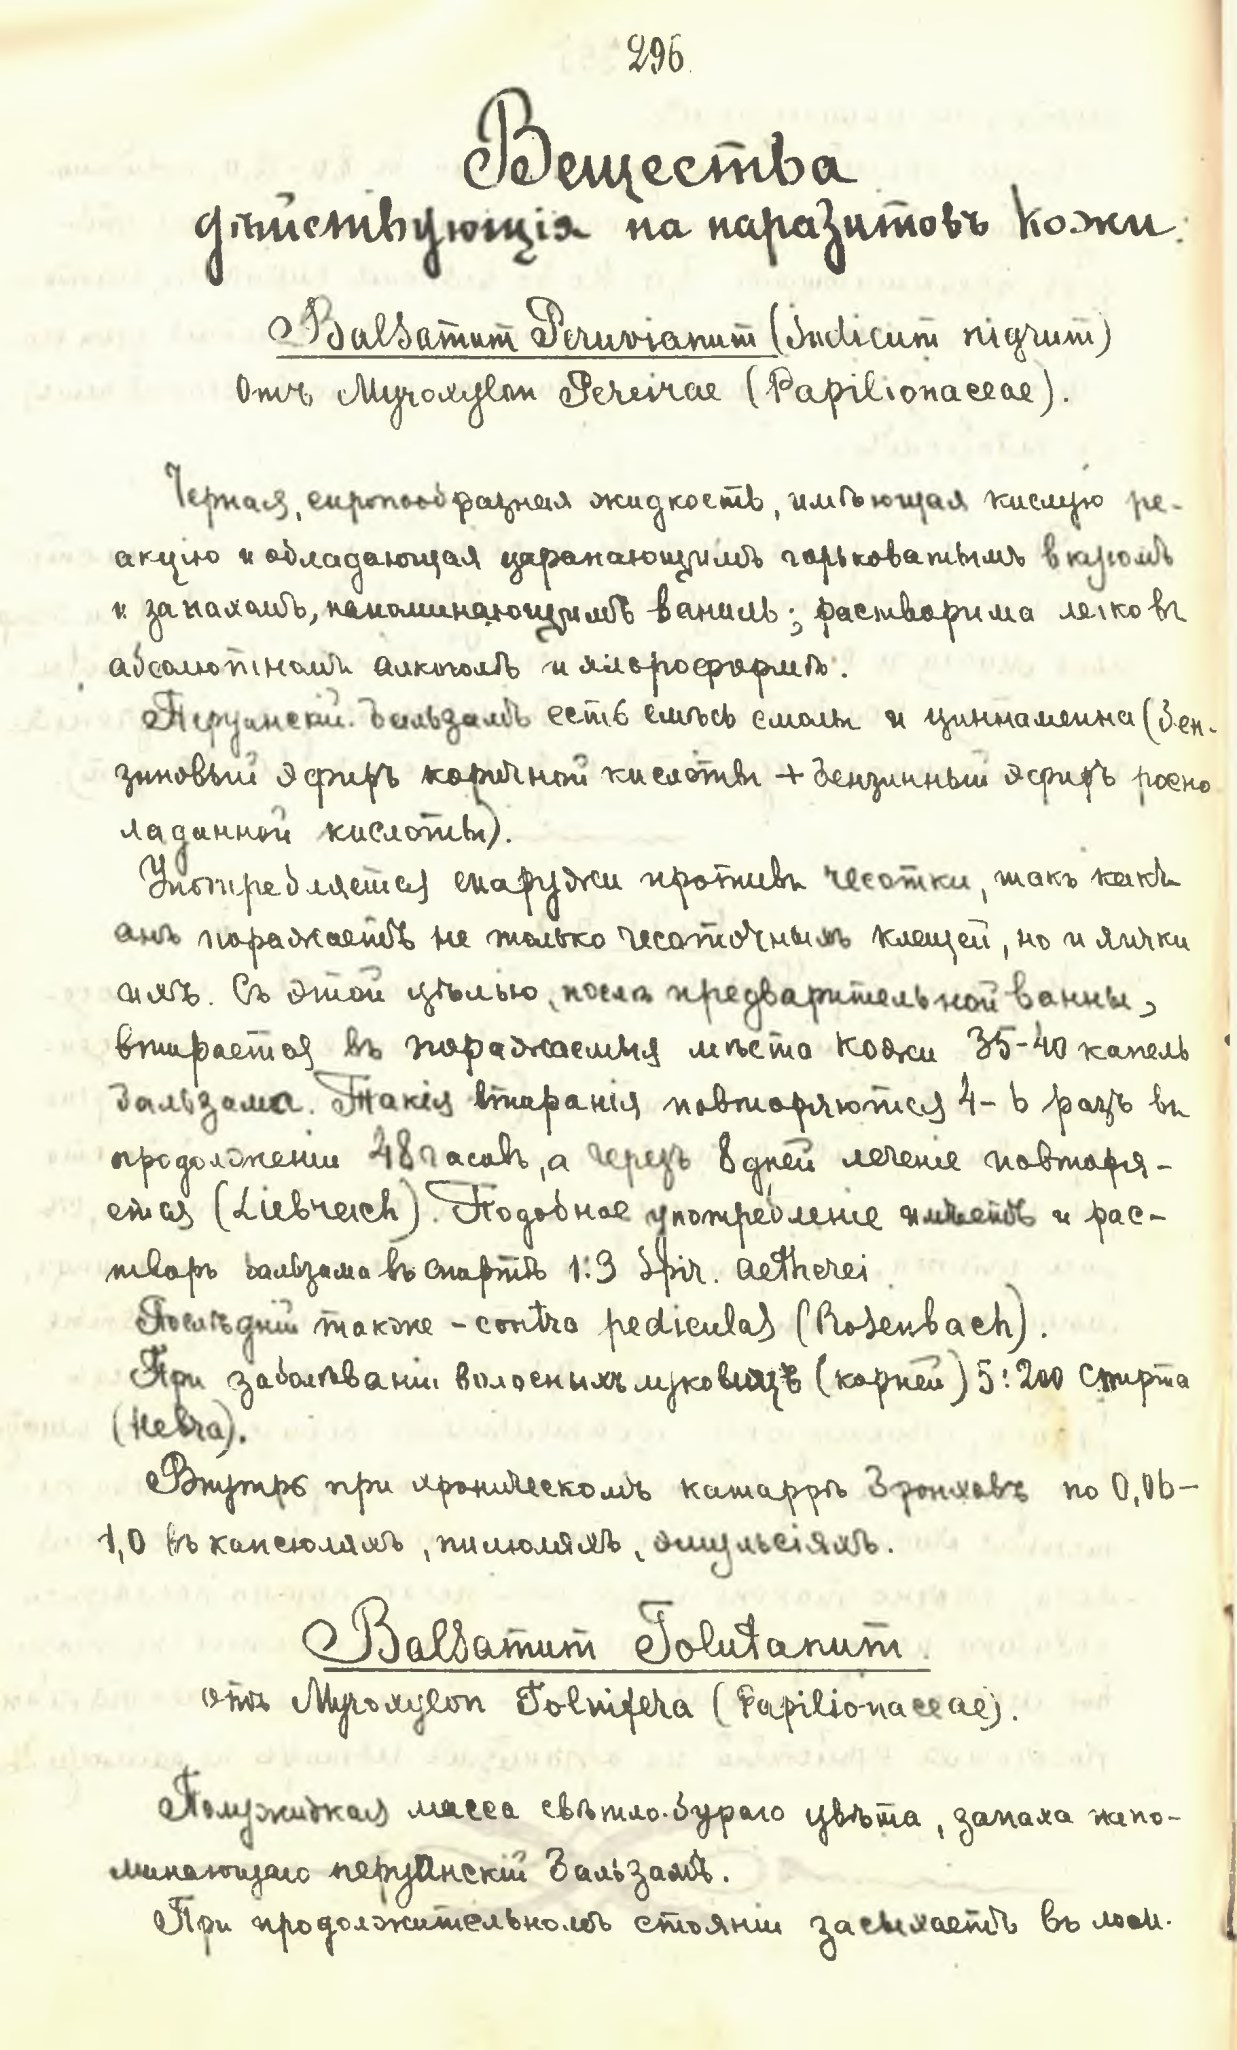 296
Вещества
дѣйствующія на паразитовъ кожи.
Balsamum Peruvianum (indicum nigrum)
Отъ Myroxylon Pereirae (Papilionaceae).
Черная, сиропообразная жидкость, имѣющая кислую ре-
акцію и обладающая царапающимъ горьковатымъ вкусомъ
и запахомъ, напоминающимъ ваниль; растворима легко въ
абсолютномъ алкоголѣ и хлороформѣ.
Перуанскій бальзамъ есть смѣсь смолы и циннамеина (бен-
зиновый эфиръ коричной кислоты + бензинный эфиръ росно
ладанной кислоты).
Употребляется снаружи противъ чесотки, такъ какъ
онъ поражаетъ не только чесоточныхъ клещей, но и яички
ихъ. Съ этой цѣлью, послѣ предварительной ванны,
втирается въ поражаемыя мѣста кожи 35-40 капель
бальзама. Такія втиранія повторяются 4-6 разъ въ
продолженіи 48 часовъ, а черезъ 8 дней леченіе повторя-
ется (Liebreich). Подобное употребленіе имѣетъ и рас-
творъ бальзама въ спиртѣ 1:3 Spir. aetherei
Послѣдній также - contra pediculas (Rosenbach).
При заболѣваніи волосныхъ луковицъ (корней) 5:200 спирта
(Hebra).
Внутрь при хроническомъ катаррѣ бронховъ по 0,06-
1,0 въ капсюляхъ, пилюляхъ, эмульсіяхъ.
Balsamum Tolutanum.
отъ Myroxylon Tolnifera (Papilionaceae).
Полужидкая масса свѣтло-бураго цвѣта, запаха напо-
минающаго перуанскій бальзамъ.
При продолжительномъ стояніи засыхаетъ въ лом-